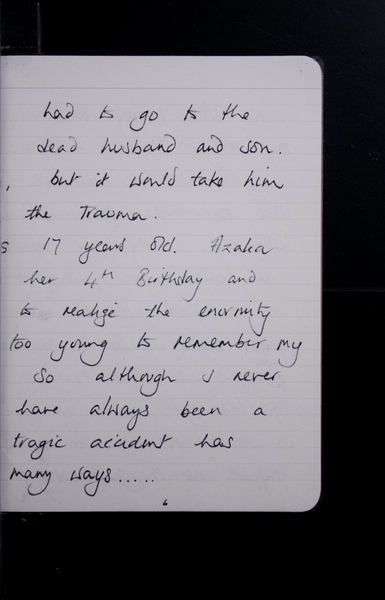 had to go to the
dead husband and son.
, but it would take him
the Trauma.
s 17 years old. Azaka
her 4th Birthday and
to realize the enormity
too young to remember my
So although I never
have always been a
tragic accident has
many ways.....
6